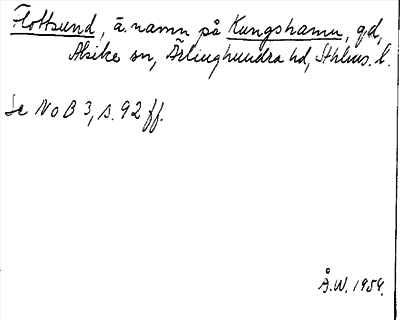 Flottsund, ä. namn på Kungshamn, gd,
Alsike sn, Ärlinghundra hd, Sthlms. l.
Se NoB 3, s. 92 ff.
Å.W. 1954.